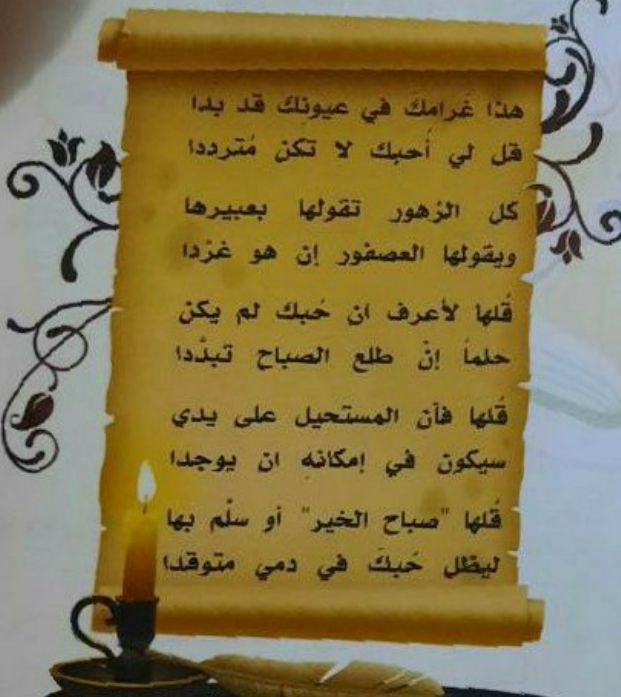 هذا غَرامكَ في عيونك قد بَدا
قل لي أُحبك لا تكن مُترددا
كل الزهور تقولها بعبيرها
ويقولها العصفور إن هو غرّدا
قُلها لأعرف ان حُبك لم يكن
حلماً إنّ طلع الصباح تبدَّدا
قُلها فأن المستحيل على يدي
سيكون في إمكانهِ ان يوجدا
قُلها "صباح الخير" أو سلّم بها
ليظل حُبكَ في دمي متوقدا